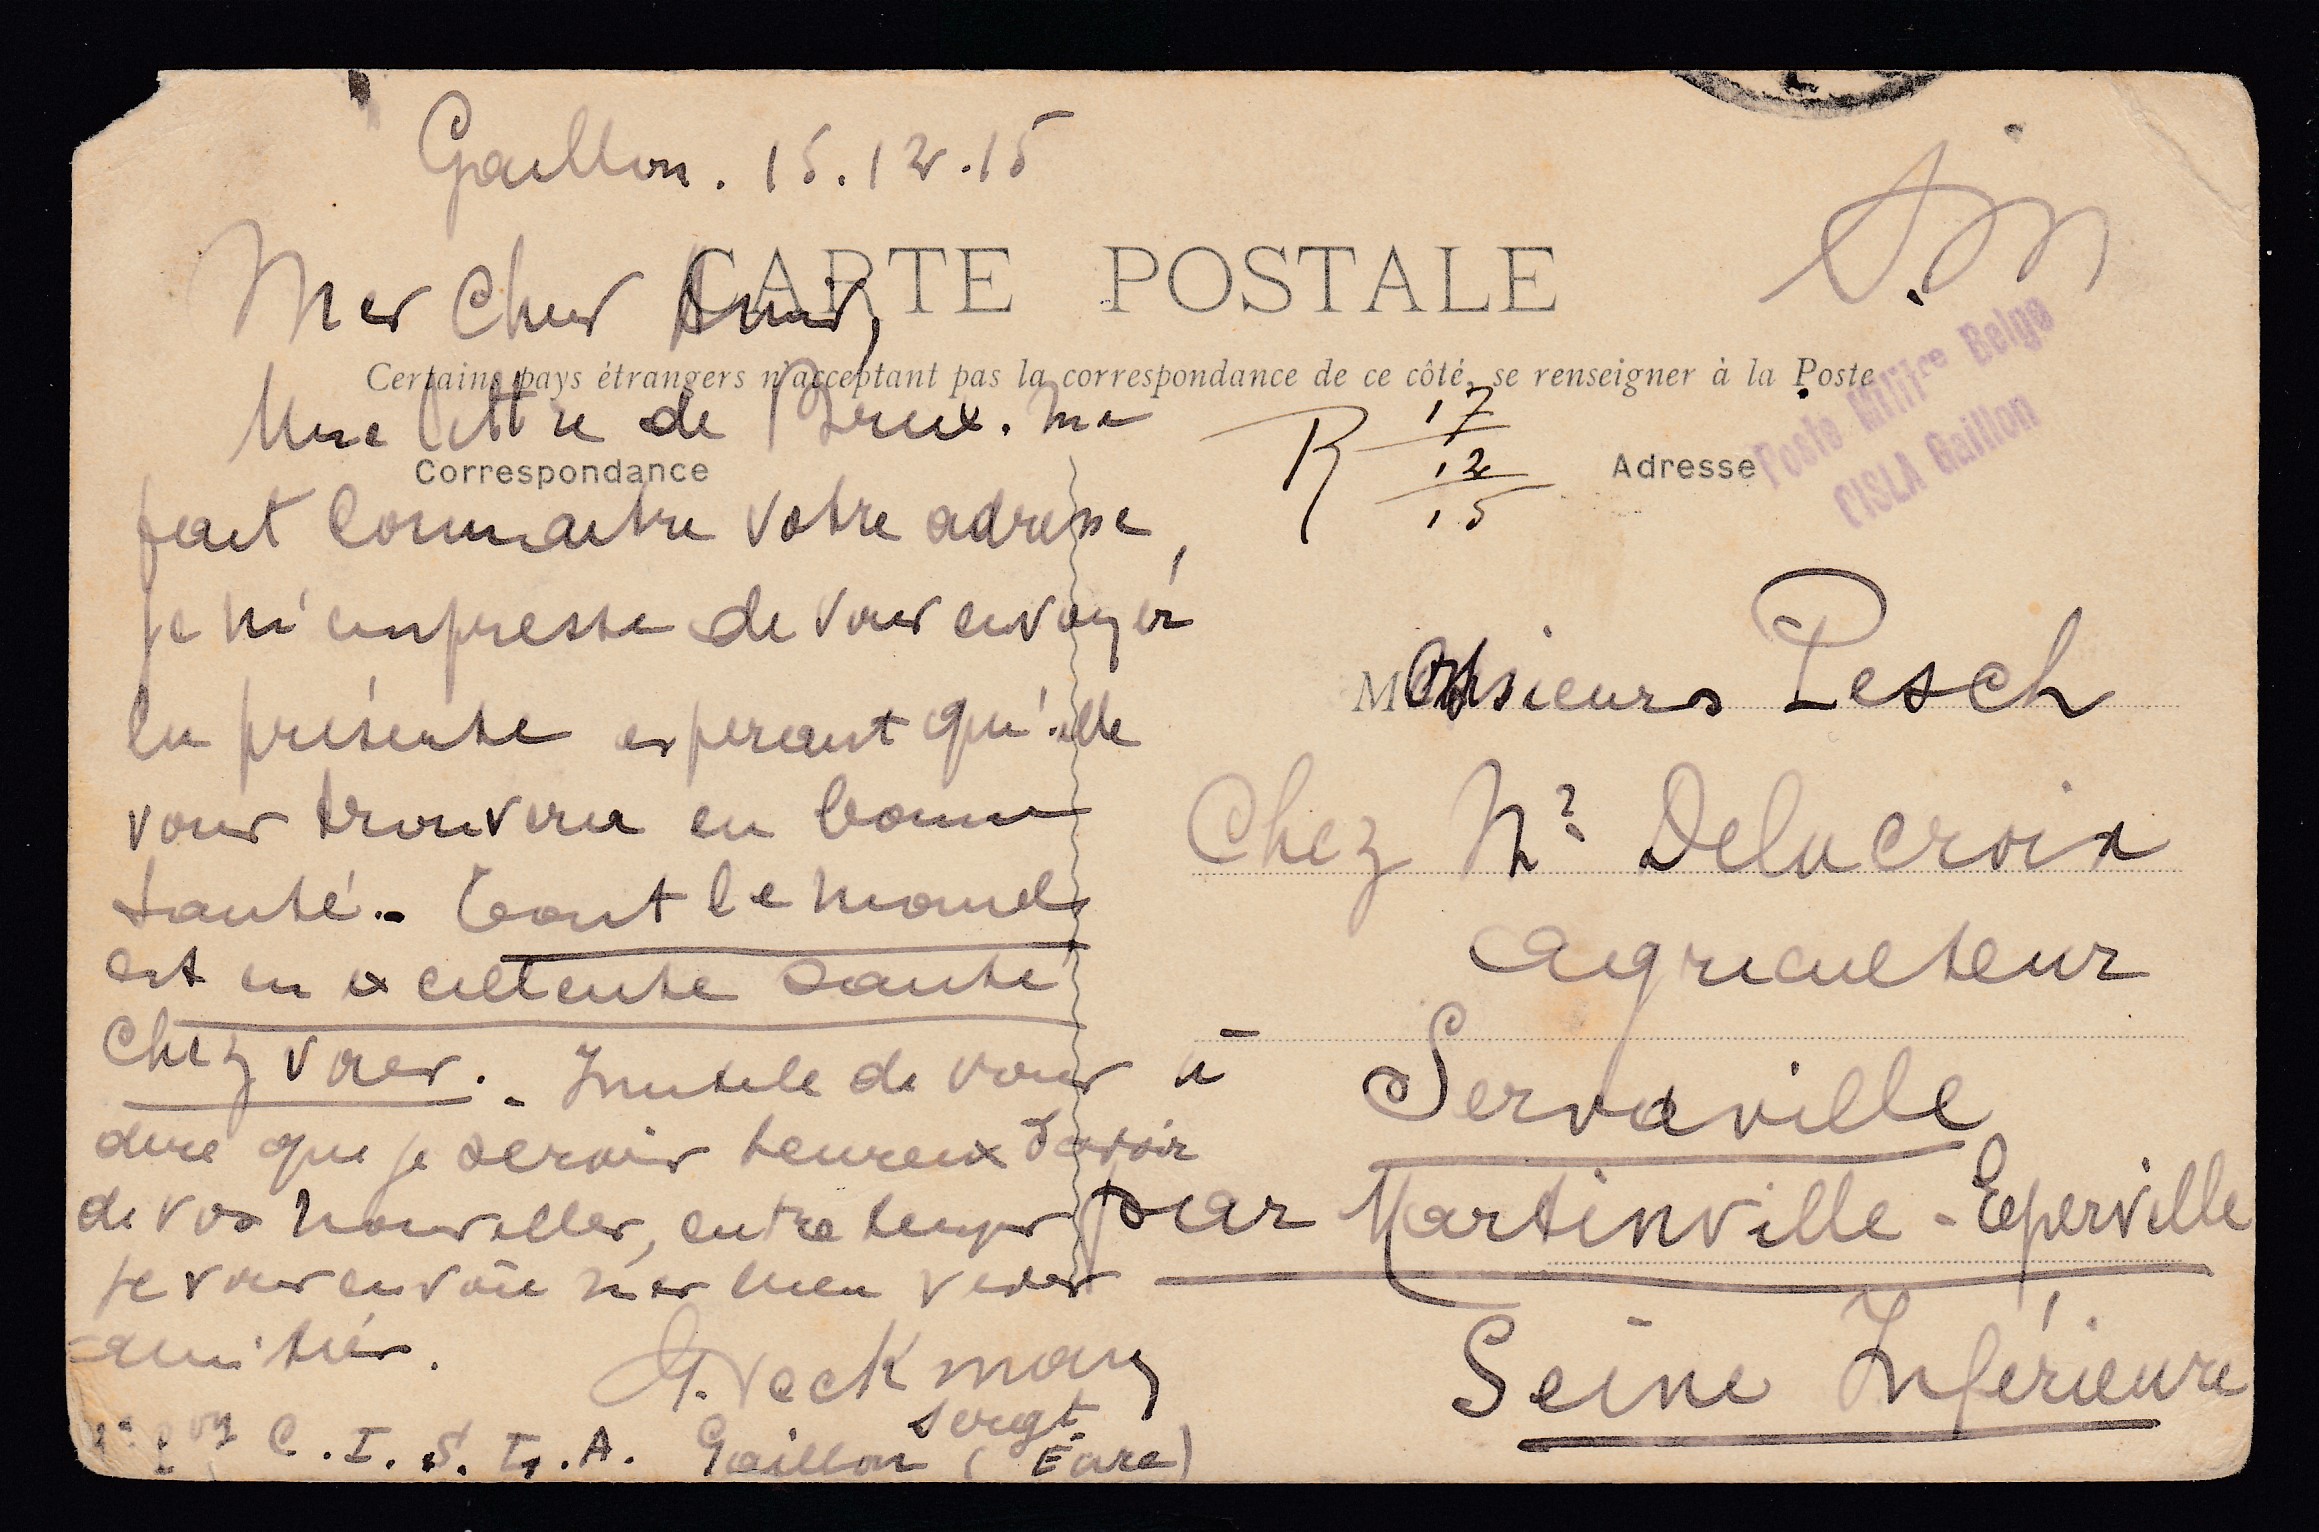 Gaillon. 15.12.15
S.M
CARTE POSTALE
Mes Chers Amis,
Certains pays étrangers n'acceptant pas la correspondance de ce côté, se renseigner à la Poste
Poste Militre Belge
CISLA Gaillon
Une lettre de Brux. me
R 17
12
15
Correspondance
Adresse
fait connaitre votre adresse,
je m'empresse de vous envoyer
la présente esperant qu'elle
vous trouvera en bonne
santé. - Tout le monde
est en excellente santé
chez vous. - Inutile de vous
dire que je serais heureux d'avoir
de vos nouvelles, entre temps
je vous envoie mes
amitiés.
G. Veckmans
sergt
Cie C.I.S.L.A. Gaillon (Eure)
Messieurs Pesch
Chez Mr Delacroix
agriculteur
à Servaville
par Martinville - Epreville
Seine Inférieure